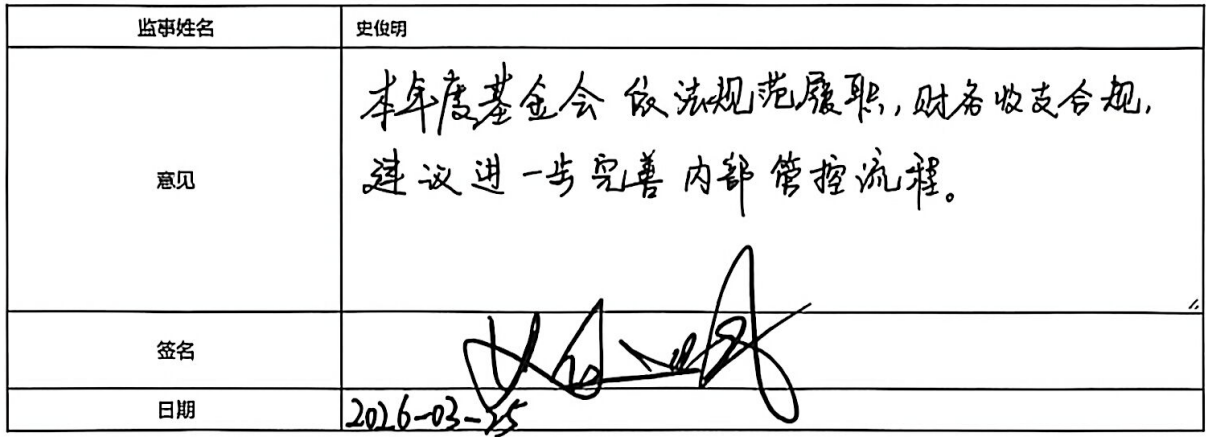 监事姓名 史俊明
意见 本年度基金会依法规范履职,财务收支合规,
建议进一步完善内部管控流程。
签名
日期 2026-03-25